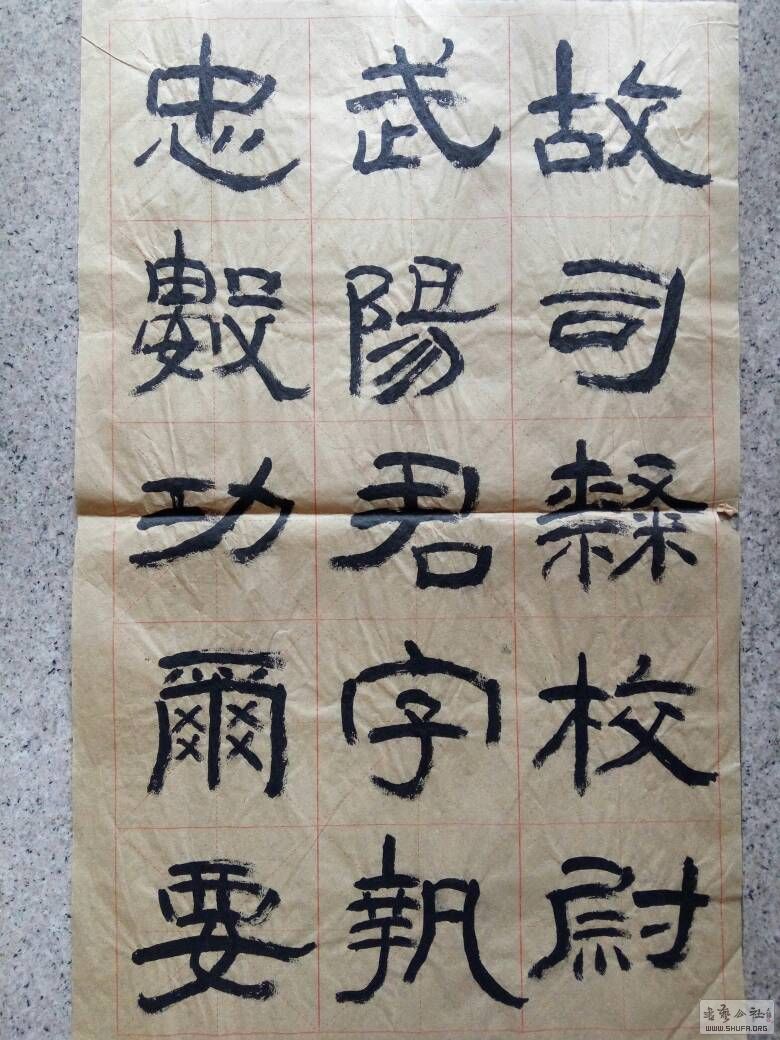 故司隸校尉
武陽君字執
忠數功爾要
書藝公社
WWW.SHUFA.ORG